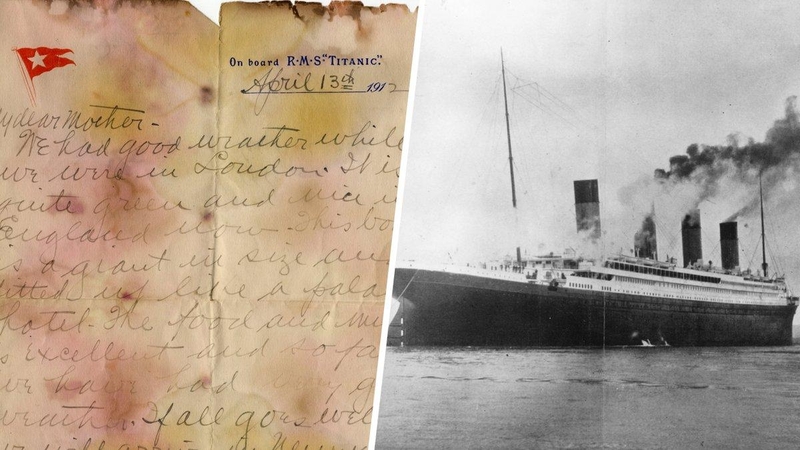 On board R·M·S "TITANIC".
April 13th 191
My dear Mother-
We had good weather while
we were in London. It is
quite green and nice i
England now. This bo
is a giant in size an
fitted up like a pala
hotel. The food and mu
s excellent and so fa
we have had very g
weather. If all goes wel
we will arrive in New